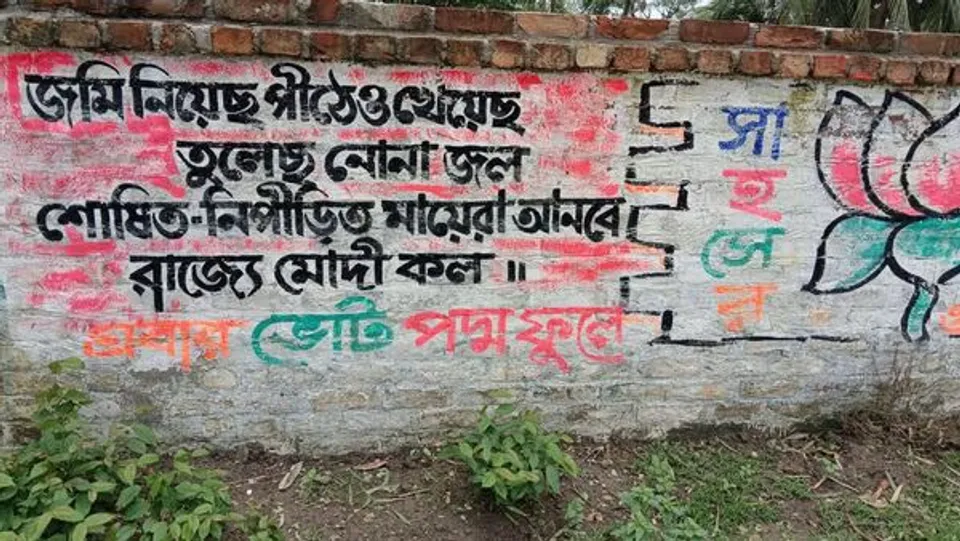 জমি নিয়েছ পীঠেও খেয়েছ
তুলেছ নোনা জল
শোষিত-নিপীড়িত মায়েরা আনবে
রাজ্যে মোদী কল ॥
এবার ভোট পদ্ম ফুলে
সা
হ
সে
র